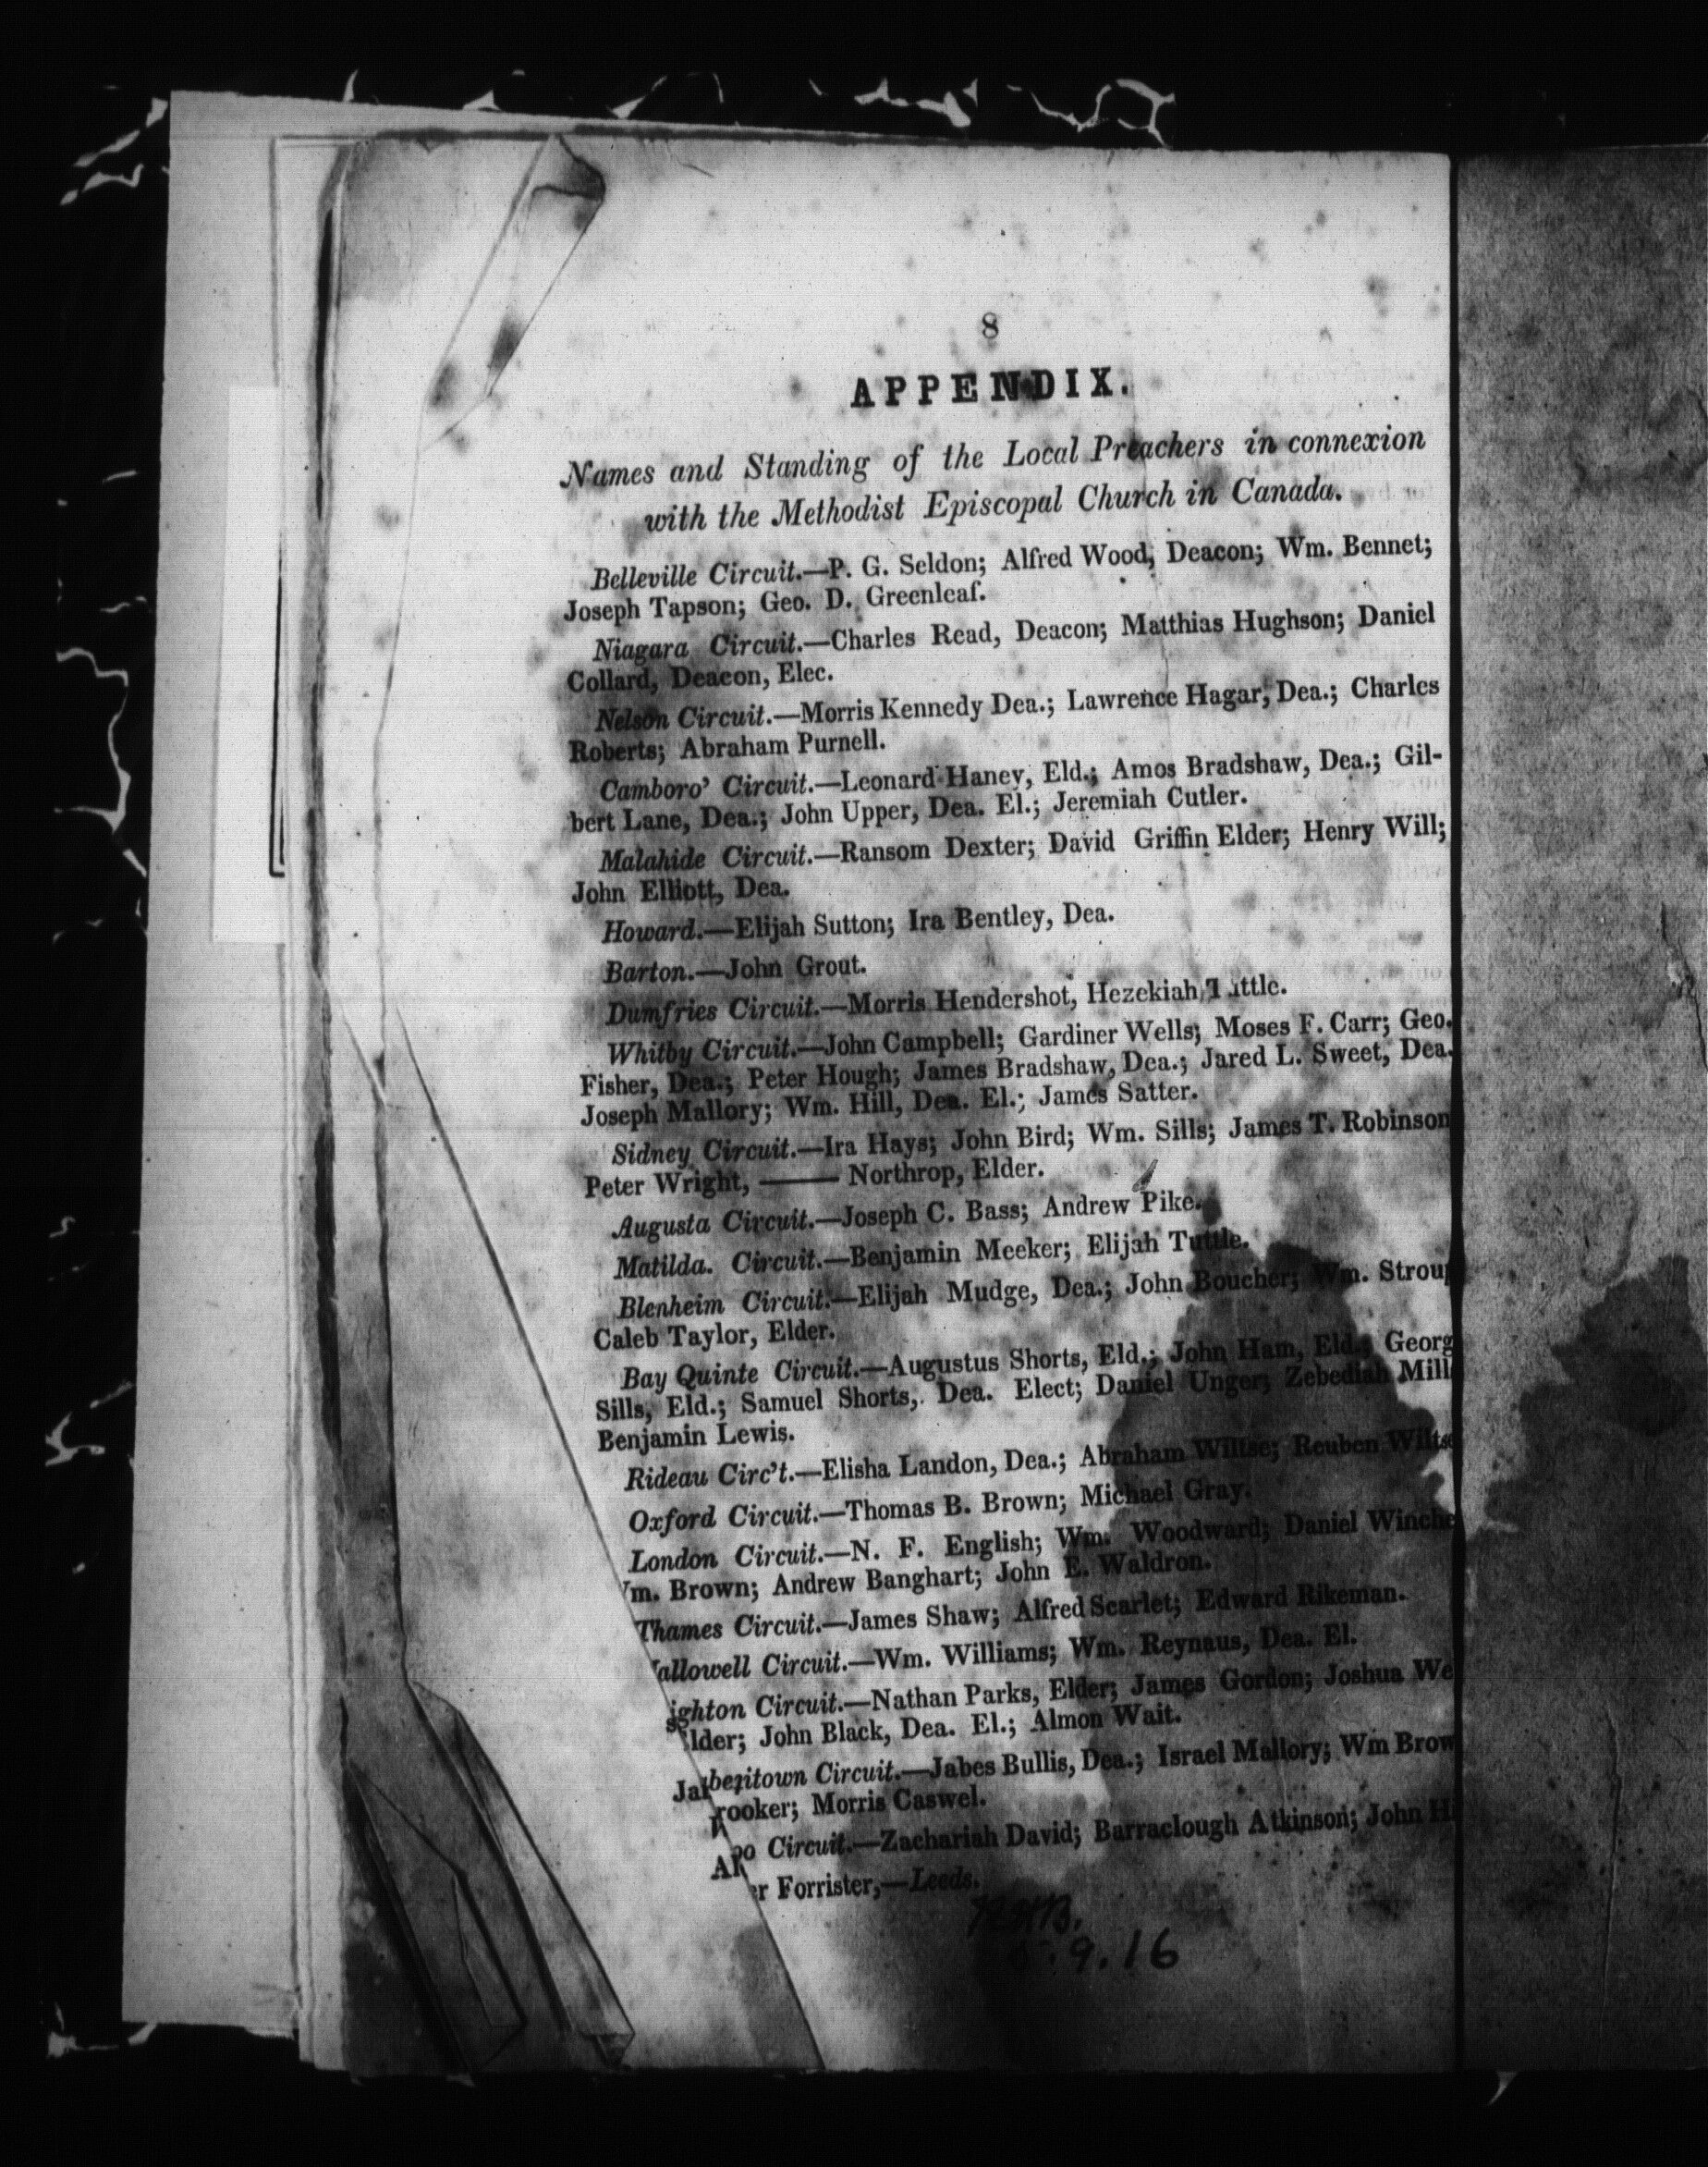 8
APPENDIX.
Names and Standing of the Local Preachers in connexion
with the Methodist Episcopal Church in Canada.
Belleville Circuit.—P. G. Seldon; Alfred Wood, Deacon; Wm. Bennet;
Joseph Tapson; Geo. D. Greenleaf.
Niagara Circuit.—Charles Read, Deacon; Matthias Hughson; Daniel
Collard, Deacon, Elec.
Nelson Circuit.—Morris Kennedy Dea.; Lawrence Hagar, Dea.; Charles
Roberts; Abraham Purnell.
Camboro' Circuit.—Leonard Haney, Eld.; Amos Bradshaw, Dea.; Gil-
bert Lane, Dea.; John Upper, Dea. El.; Jeremiah Cutler.
Malahide Circuit.—Ransom Dexter; David Griffin Elder; Henry Will;
John Elliott, Dea.
Howard.—Elijah Sutton; Ira Bentley, Dea.
Barton.—John Grout.
Dumfries Circuit.—Morris Hendershot, Hezekiah Tuttle.
Whitby Circuit.—John Campbell; Gardiner Wells; Moses F. Carr; Geo.
Fisher, Dea.; Peter Hough; James Bradshaw, Dea.; Jared L. Sweet, Dea.
Joseph Mallory; Wm. Hill, Dea. El.; James Satter.
Sidney Circuit.—Ira Hays; John Bird; Wm. Sills; James T. Robinson
Peter Wright, —— Northrop, Elder.
Augusta Circuit.—Joseph C. Bass; Andrew Pike.
Matilda. Circuit.—Benjamin Meeker; Elijah Tuttle.
Blenheim Circuit.—Elijah Mudge, Dea.; John Boucher; Wm. Stroup
Caleb Taylor, Elder.
Bay Quinte Circuit.—Augustus Shorts, Eld.; John Ham, Eld.; Georg
Sills, Eld.; Samuel Shorts, Dea. Elect; Daniel Unger; Zebediah Mill
Benjamin Lewis.
Rideau Circ't.—Elisha Landon, Dea.; Abraham Wiltse; Reuben Wiltse
Oxford Circuit.—Thomas B. Brown; Michael Gray.
London Circuit.—N. F. English; Wm. Woodward; Daniel Winche
m. Brown; Andrew Banghart; John E. Waldron.
Thames Circuit.—James Shaw; Alfred Scarlet; Edward Rikeman.
allowell Circuit.—Wm. Williams; Wm. Reynaus, Dea. El.
ighton Circuit.—Nathan Parks, Elder; James Gordon; Joshua We
lder; John Black, Dea. El.; Almon Wait.
Circuit.—Jabes Bullis, Dea.; Israel Mallory; Wm Brow
rooker; Morris Caswel.
oo Circuit.—Zachariah David; Barraclough Atkinson; John H
er Forrister,—Leeds.
9.16